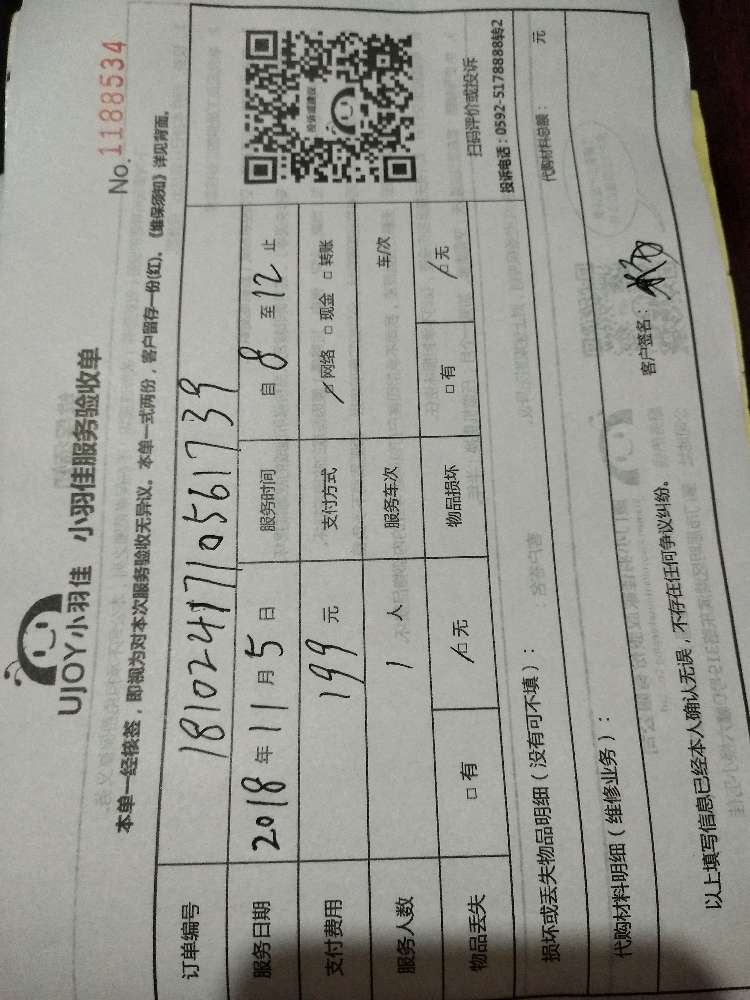 UJOY小羽佳 小羽佳服务验收单
No. 1188534
本单一经核签，即视为对本次服务验收无异议。本单一式两份，客户留存一份(红)。《维保须知》详见背面。
订单编号 181024171056 1739
服务日期 2018 年 11 月 5 日 服务时间 自 8 至 12 止
支付费用 199 元 支付方式 网络 □ 现金 □ 转账
服务人数 1 人 服务车次 车/次
物品丢失 □ 有 无 物品损坏 □ 有 无
投诉或建议
扫码评价或投诉
投诉电话：0592-5178888转2
损坏或丢失物品明细（没有可不填）：
代购材料明细（维修业务）：
代购材料总额： 元
以上填写信息已经本人确认无误，不存在任何争议纠纷。
客户签名：